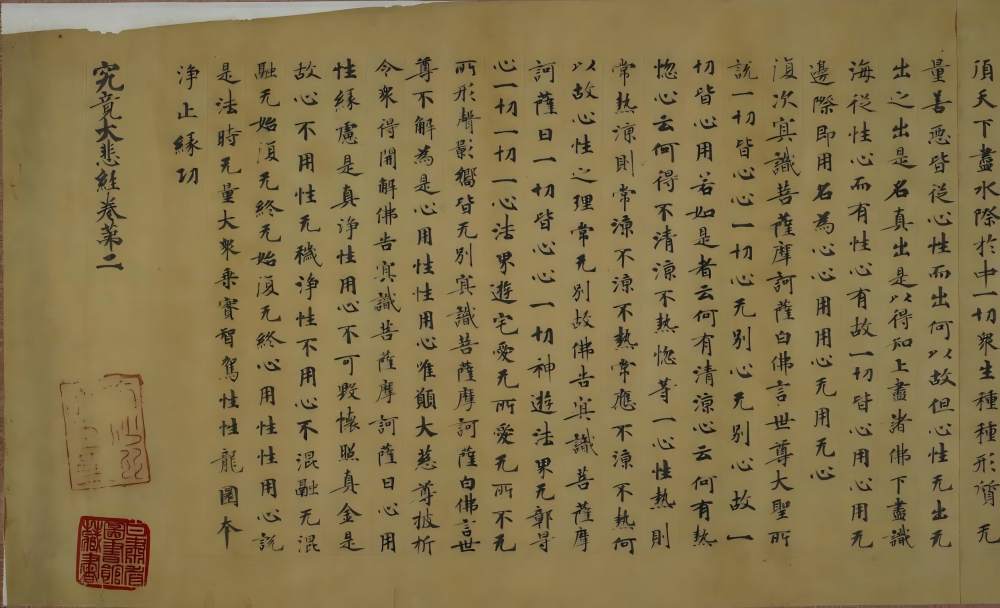 頂天下盡水際於中一切衆生種種形質无
量善惡皆従心性而出何以故但心性无出无
出之出是名真出是以得知上盡諸佛下盡識
海従性心而有性心有故一切皆心用心用无
邊際即用名為心心用用心无用无心
復次㝠識菩薩摩訶薩白佛言世尊大聖所
說一切皆心心一切心无別心无別心故一
切皆心用若如是者云何有清涼心云何有熱
惚心云何得不清涼不熱惚等一心性熱則
常熱涼則常涼不涼不熱常應不涼不熱何
以故心性之理常无別故佛告㝠識菩薩摩
訶薩曰一切皆心心一切神遊法界无鄣㝵
心一切一切一心法界遊宅愛无所愛无所不无
所形聲影嚮皆无別㝠識菩薩摩訶薩白佛言世
尊不解為是心用性性用心唯願大慈尊披析
令衆得開解佛告㝠識菩薩摩訶薩曰心用
性緣慮是真淨性用心不可毀懷照真金是
故心不用性无穢淨性不用心不混融无混
融无始復无終无始復无終心用性性用心說
是法時无量大衆乘實智駕性龍圖夲
淨止緣功
究竟大悲經卷第二
甘肅省圖書館藏書